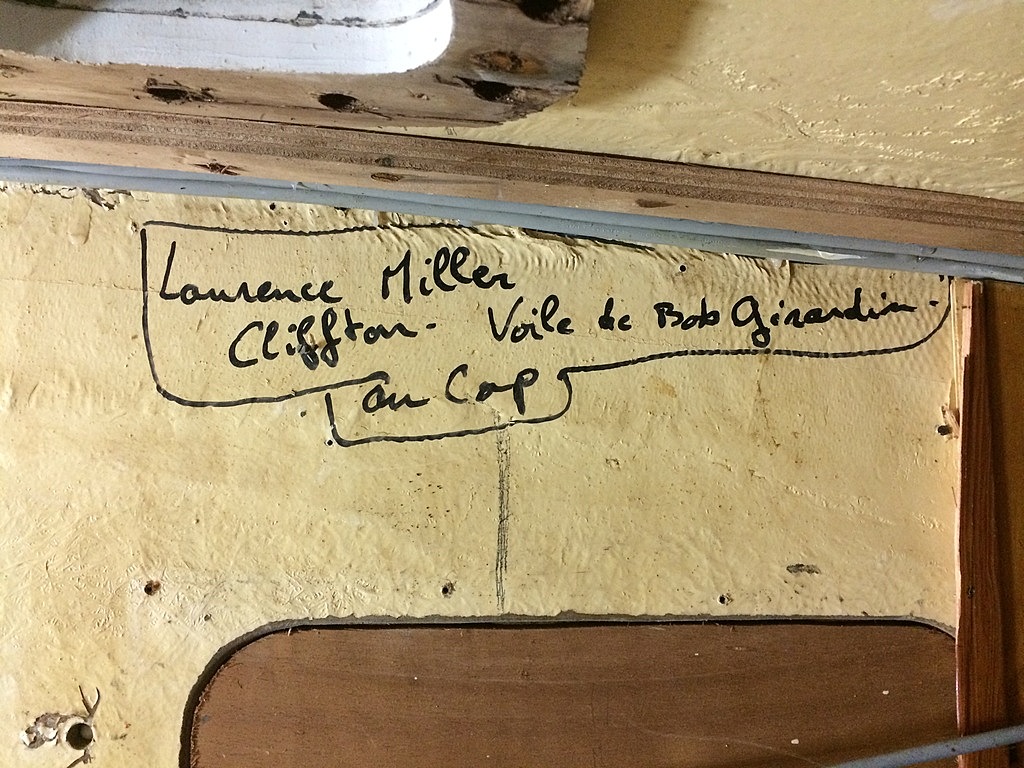 Laurence Miller
Cliffton. Voile de Bob Girardin.
au Cap